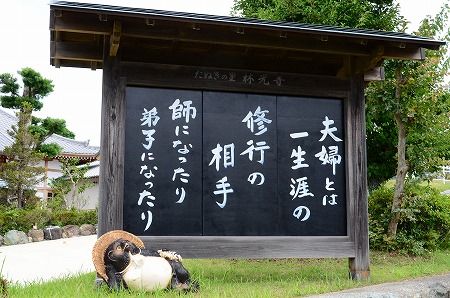 たぬきの里 林光寺
夫婦とは
一生涯の
修行の
相手
師になったり
弟子になったり